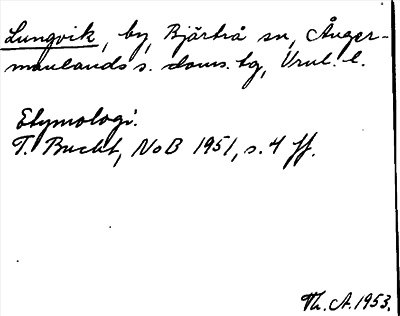 Lungvik, by, Bjärtrå sn, Ånger-
manlands s. doms. tg, Vnl. l.
Etymologi:
T. Bucht, NoB 1951, s. 4 ff.
Th. A. 1953.